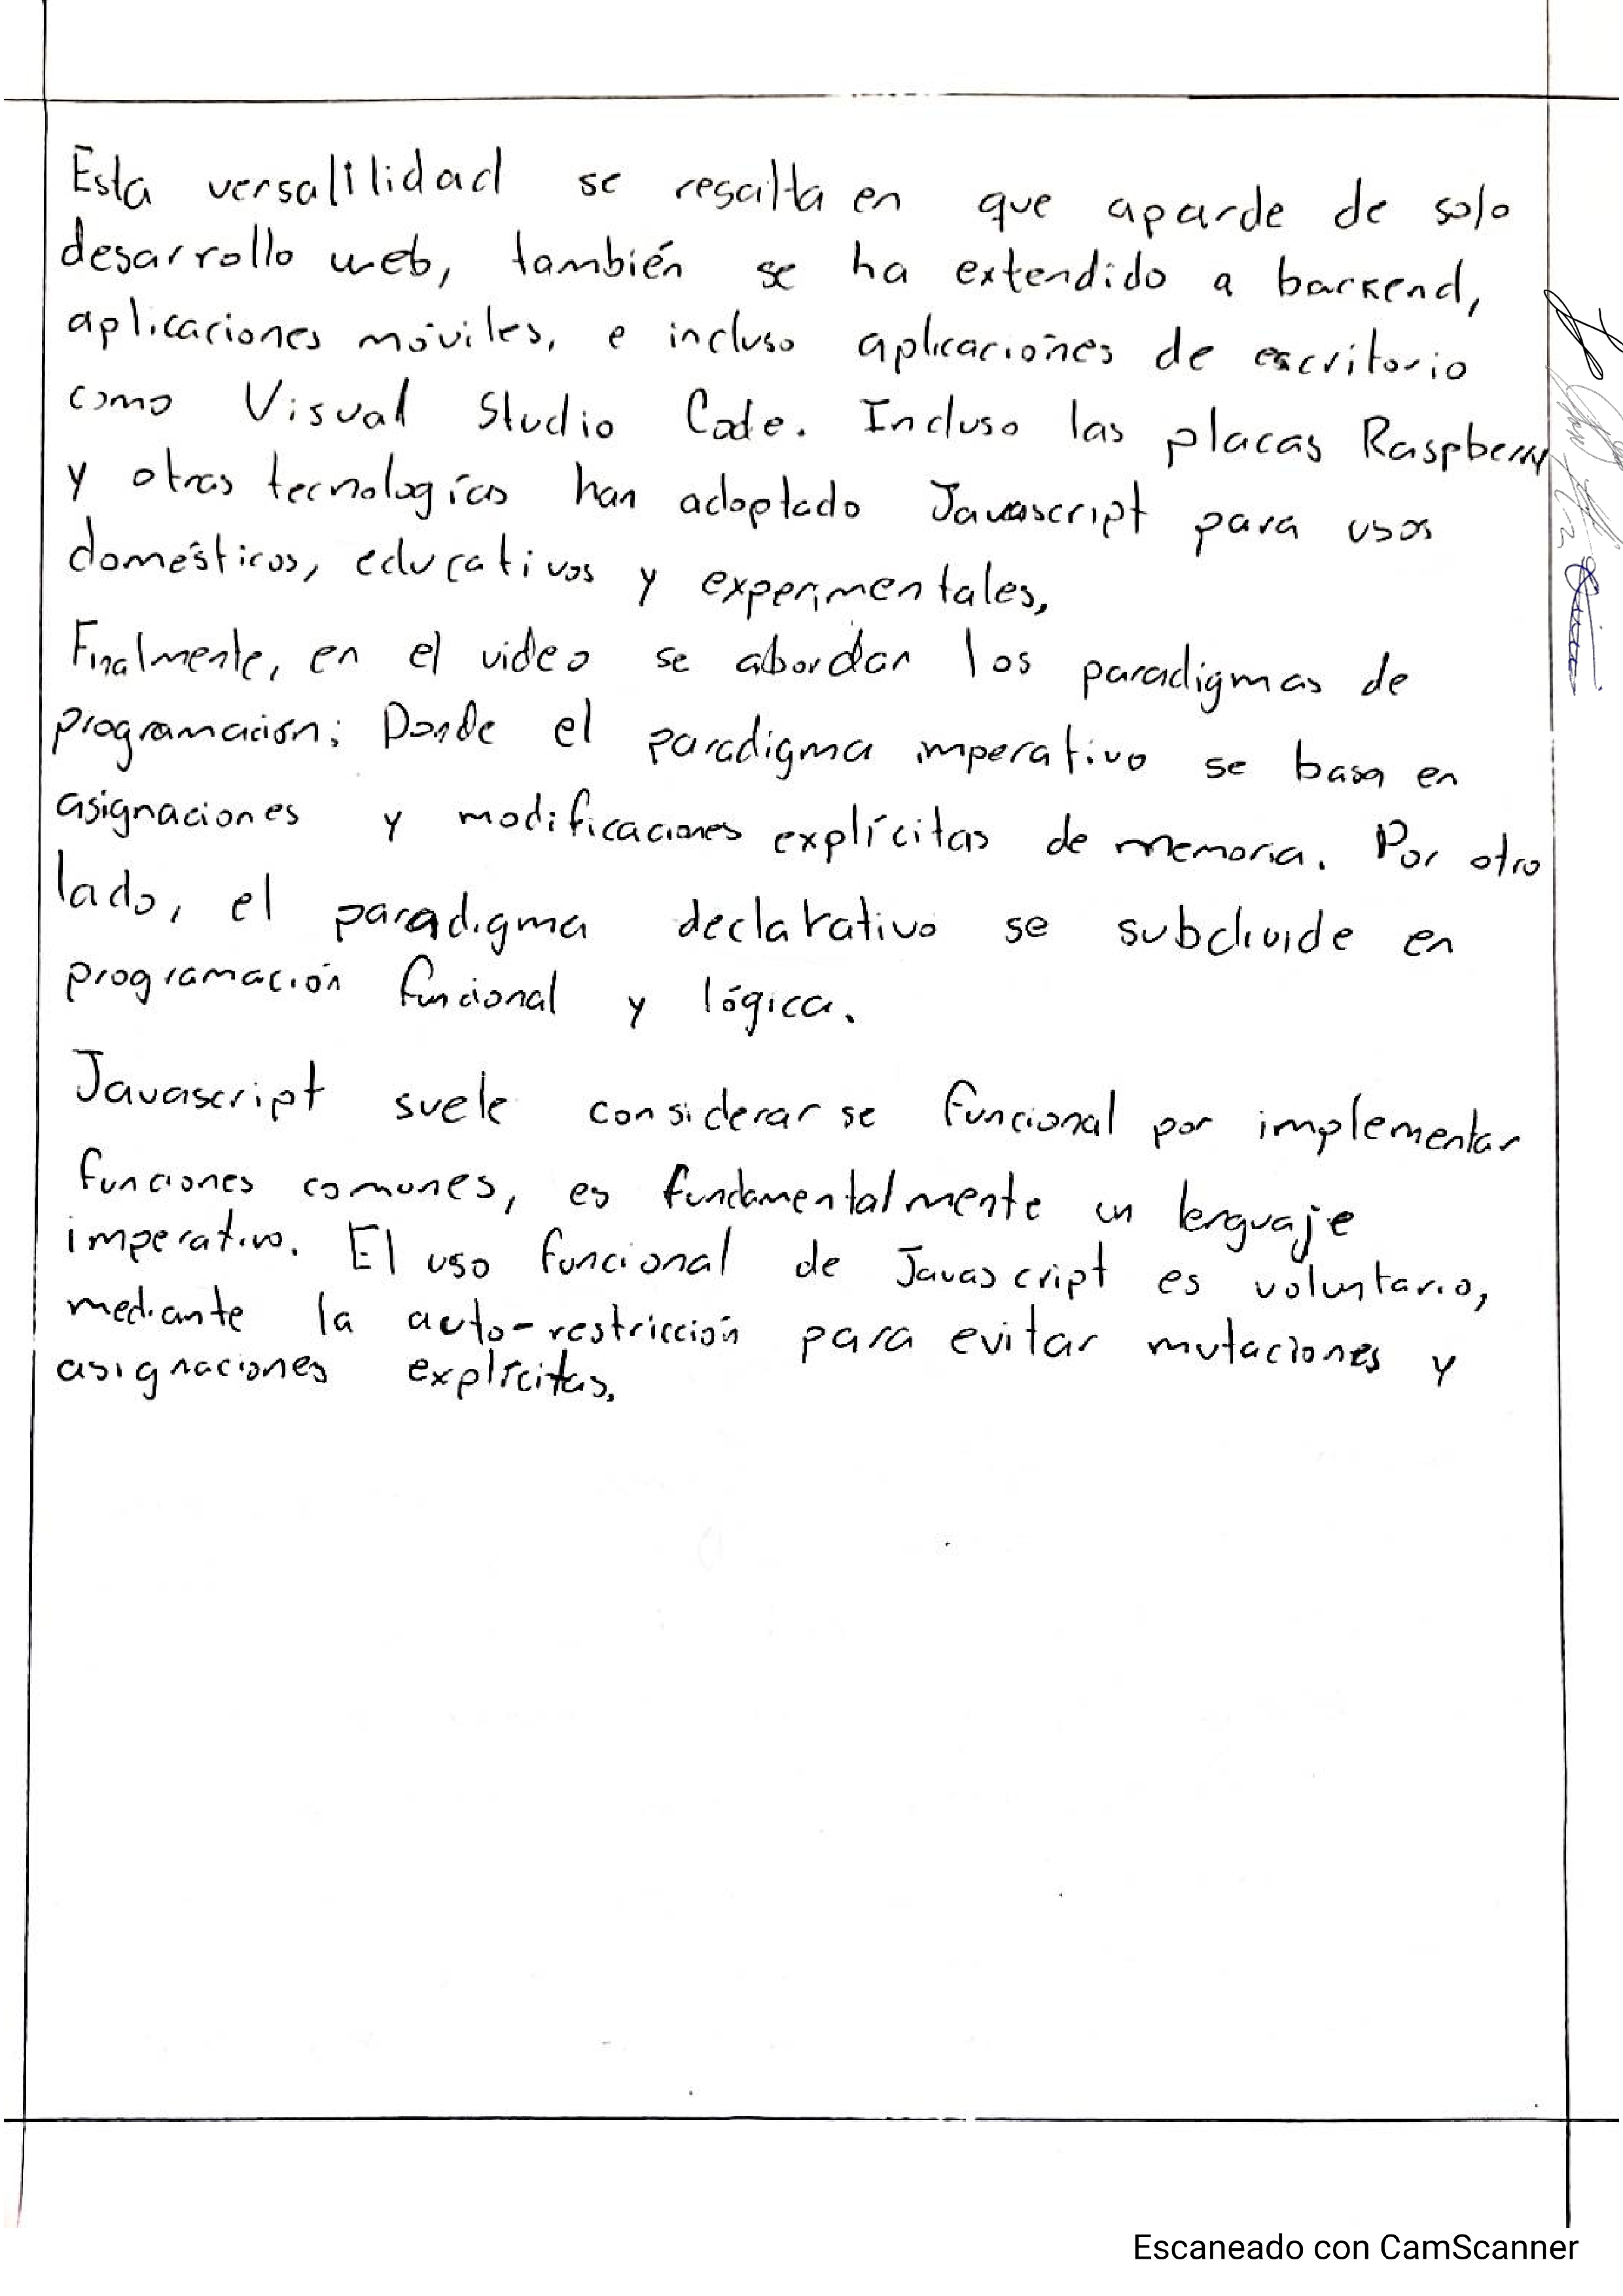 Esta versatilidad se resalta en que aparde de solo
desarrollo web, también se ha extendido a backend,
aplicaciones móviles, e incluso aplicaciones de escritorio
como Visual Studio Code. Incluso las placas Raspberry
y otras tecnologías han adoptado Javascript para usos
domésticos, educativos y experimentales,
Finalmente, en el video se abordan los paradigmas de
programación; Donde el paradigma imperativo se basa en
asignaciones y modificaciones explícitas de memoria. Por otro
lado, el paradigma declarativo se subdivide en
programación funcional y lógica.
Javascript suele considerarse funcional por implementar
funciones comunes, es fundamentalmente un lenguaje
imperativo. El uso funcional de Javascript es voluntario,
mediante la auto-restricción para evitar mutaciones y
asignaciones explícitas.
Escaneado con CamScanner